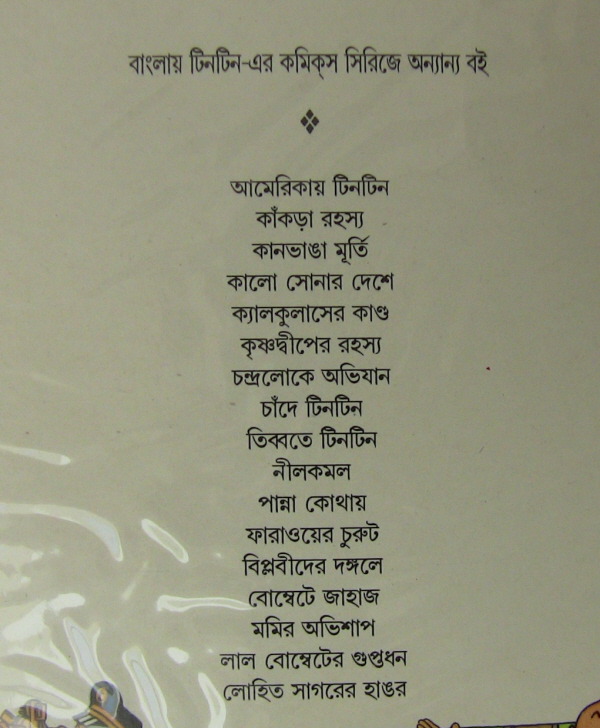 বাংলায় টিনটিন-এর কমিক্স সিরিজে অন্যান্য বই
আমেরিকায় টিনটিন
কাঁকড়া রহস্য
কানভাঙা মূর্তি
কালো সোনার দেশে
ক্যালকুলাসের কাণ্ড
কৃষ্ণদ্বীপের রহস্য
চন্দ্রলোকে অভিযান
চাঁদে টিনটিন
তিব্বতে টিনটিন
নীলকমল
পান্না কোথায়
ফারাওয়ের চুরুট
বিপ্লবীদের দঙ্গলে
বোম্বেটে জাহাজ
মমির অভিশাপ
লাল বোম্বেটের গুপ্তধন
লোহিত সাগরের হাঙর